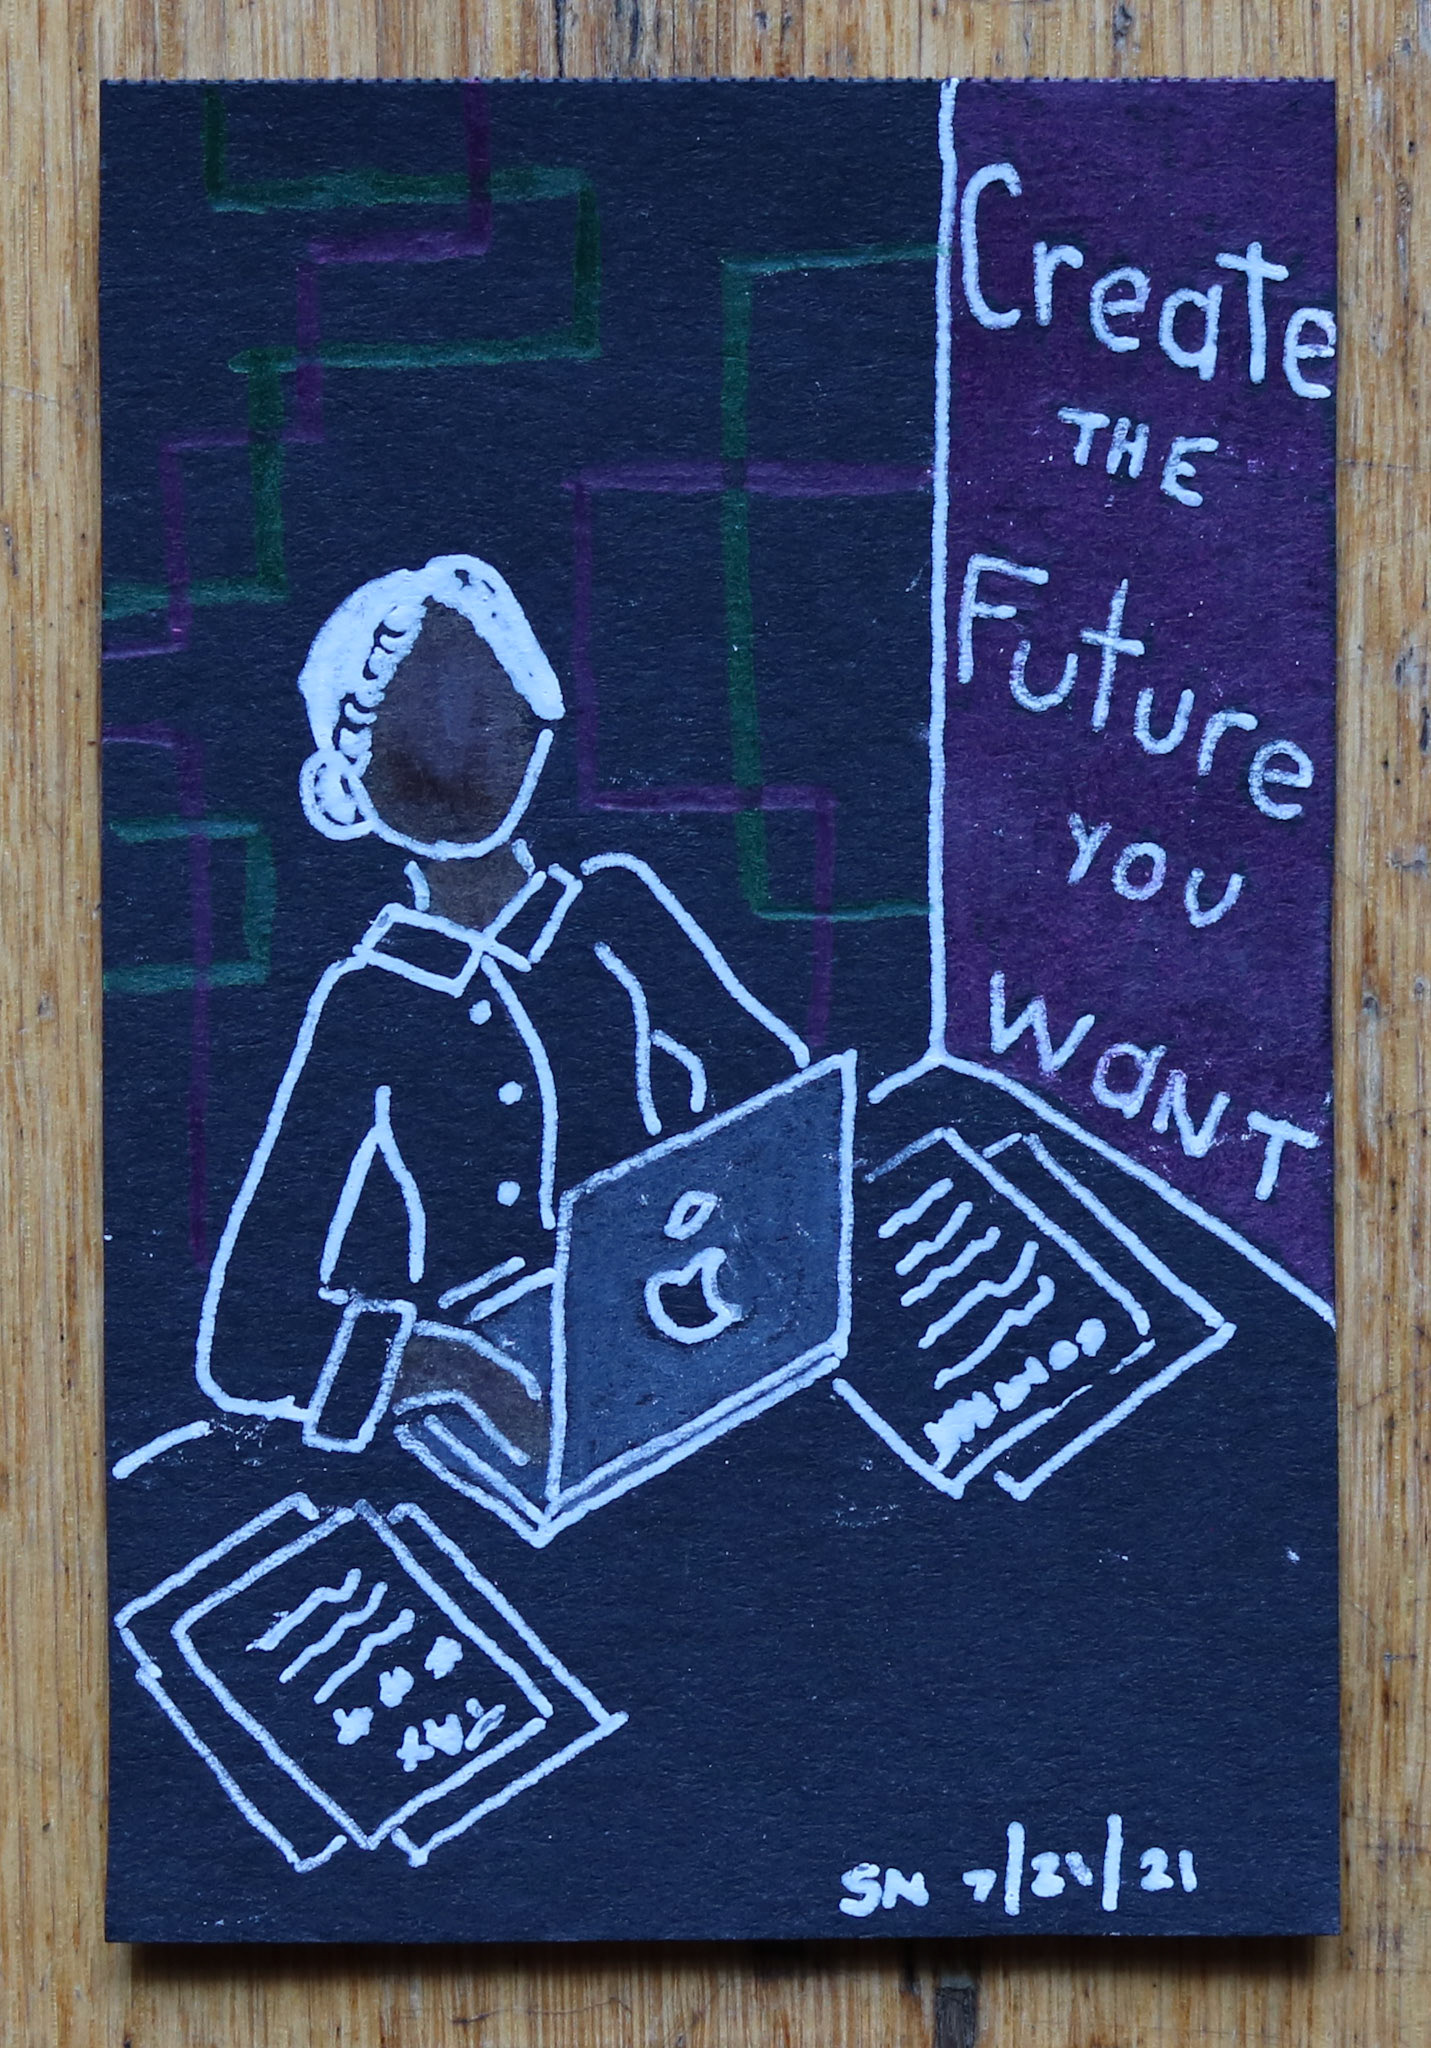 Create
THE
Future
you
want
SN 7/21/21